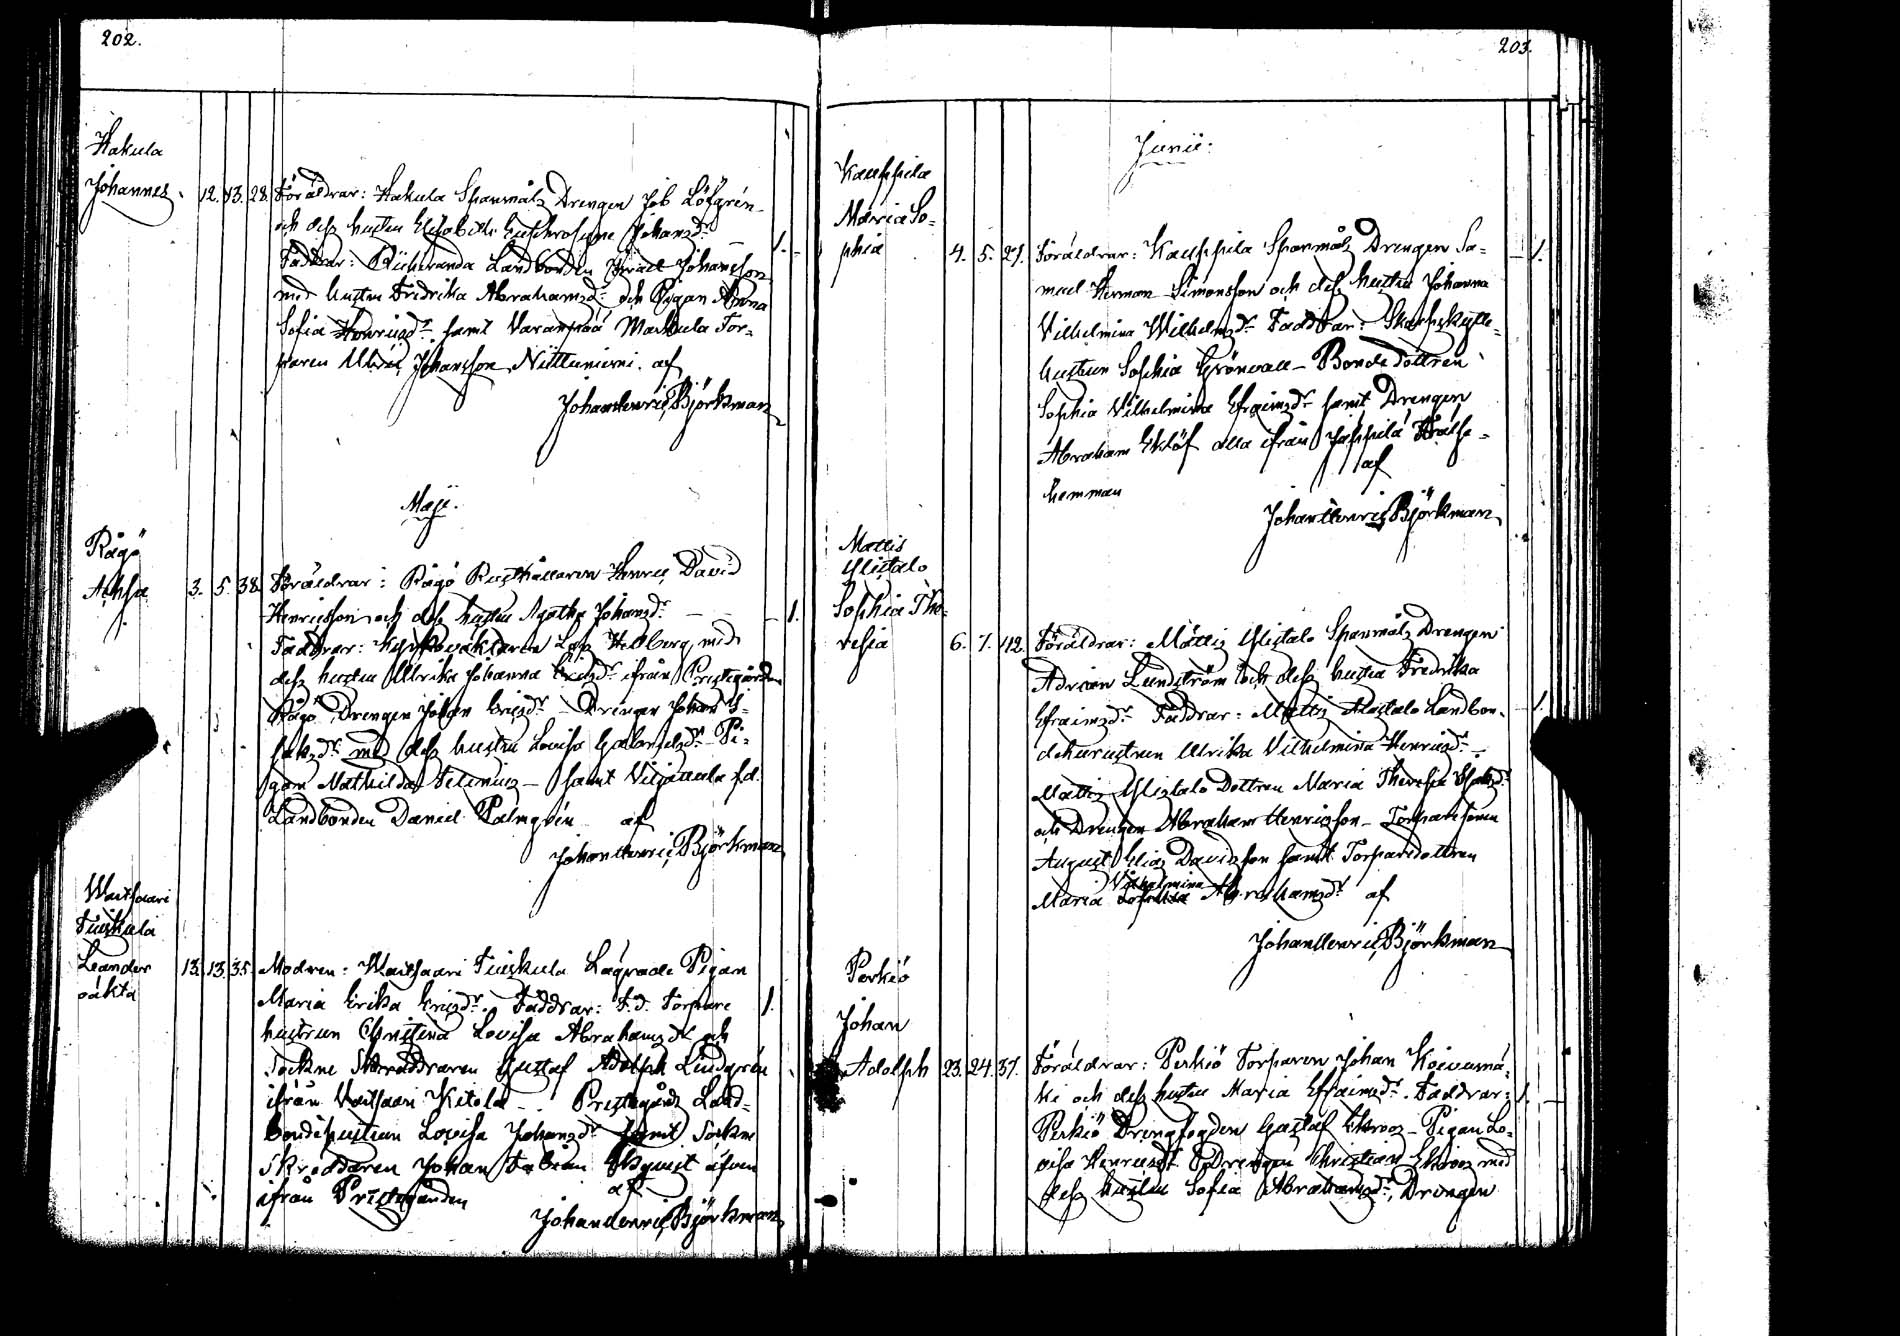 202.
Hakula
Johannes.
12. 13. 28. Föräldrar: Hakula Spanmåls Drengen Job Löfgrén
och dess hustru Elisabeth Euphrosyne Johansdr
1.
Faddrar: Landbonden Israel Johansson
med hustru Fredrika Abrahamsdr och Pigan Anna
Sofia Henricsdr samt Varanpää Markula Tor-
paren Johansson Niittuniemi. af
Johan Henric Björkman
Maji.
Rågö
3. 5. 38. Föräldrar: Rågö Rusthållaren Henric David
Henricsson och dess hustru Agatha Johansdr
1.
Faddrar: Hellberg med
dess hustru Ulrika Johanna Ericsdr ifrån Prestegården
Rågö Drengen Johan Ericsdr - Drengen Johan I-
saksdr med dess hustru Lovisa Gabrielsdr - Pi-
gan Mathilda Selenius - samt Viljanala fd.
Landbonden Daniel Palmqvén af
Johan Henric Björkman
Waitsaari
Tuiskula
Leander
oäkta
13. 13. 35. Modren: Waitsaari Tuiskula Lägrade Pigan
Maria Erika Ericsdr. Faddrar: F.d. Torpare
1.
hustrun Christina Lovisa Abrahamsdr och
Sockne Skräddaren Gustaf Adolph Lindgrén
ifrån Vaitsaari Kitola - Prestegårds Land-
bondehustrun Lovisa Johansdr samt Sockne
Skräddaren Johan Fabian Ekqvist äfven
ifrån Prestegården af
Johan Henric Björkman
203.
Junii.
Kauppila
Maria So-
phia
4. 5. 27. Föräldrar: Kauppila Spanmåls Drengen Sa-
1.
muel Herman Simonsson och dess hustru Johanna
Vilhelmina Wilhelmsdr Faddrar: Skarpskytte-
hustrun Sophia Grönvall - Bonde Dottren
Sophia Vilhelmina Efraimsdr samt Drengen
Abraham Eklöf alla ifrån Jappilä Frälse-
hemman af
Johan Henric Björkman
Mattis
Ylistalo
Sophia The-
resia
6. 7. 42. Föräldrar: Mattis Ylistalo Spanmåls Drengen
Adrian Lundström och dess hustru Fredrika
Efraimsdr Faddrar: Mattis Alastalo Landbon-
1.
dehustrun Ulrika Vilhelmina Henricsdr -
Mattis Ylistalo Dottren Maria Theresia
och Drengen Abraham Henricsson - Torparesonen
August Elias Davidsson samt Torparedottren
Maria Vilhelmina Abrahamsdr af
Johan Henric Björkman
Perkiö
Johan
Adolph
23. 24. 37. Föräldrar: Perkiö Torparen Johan Koivumä-
ki och dess hustru Maria Efraimsdr. Faddrar:
1.
Perkiö Drengfogden Gustaf Ekroos - Pigan Lo-
visa Henricsdr Drengen Christian Ekroos med
dess hustru Sofia Abrahamsdr, Drengen